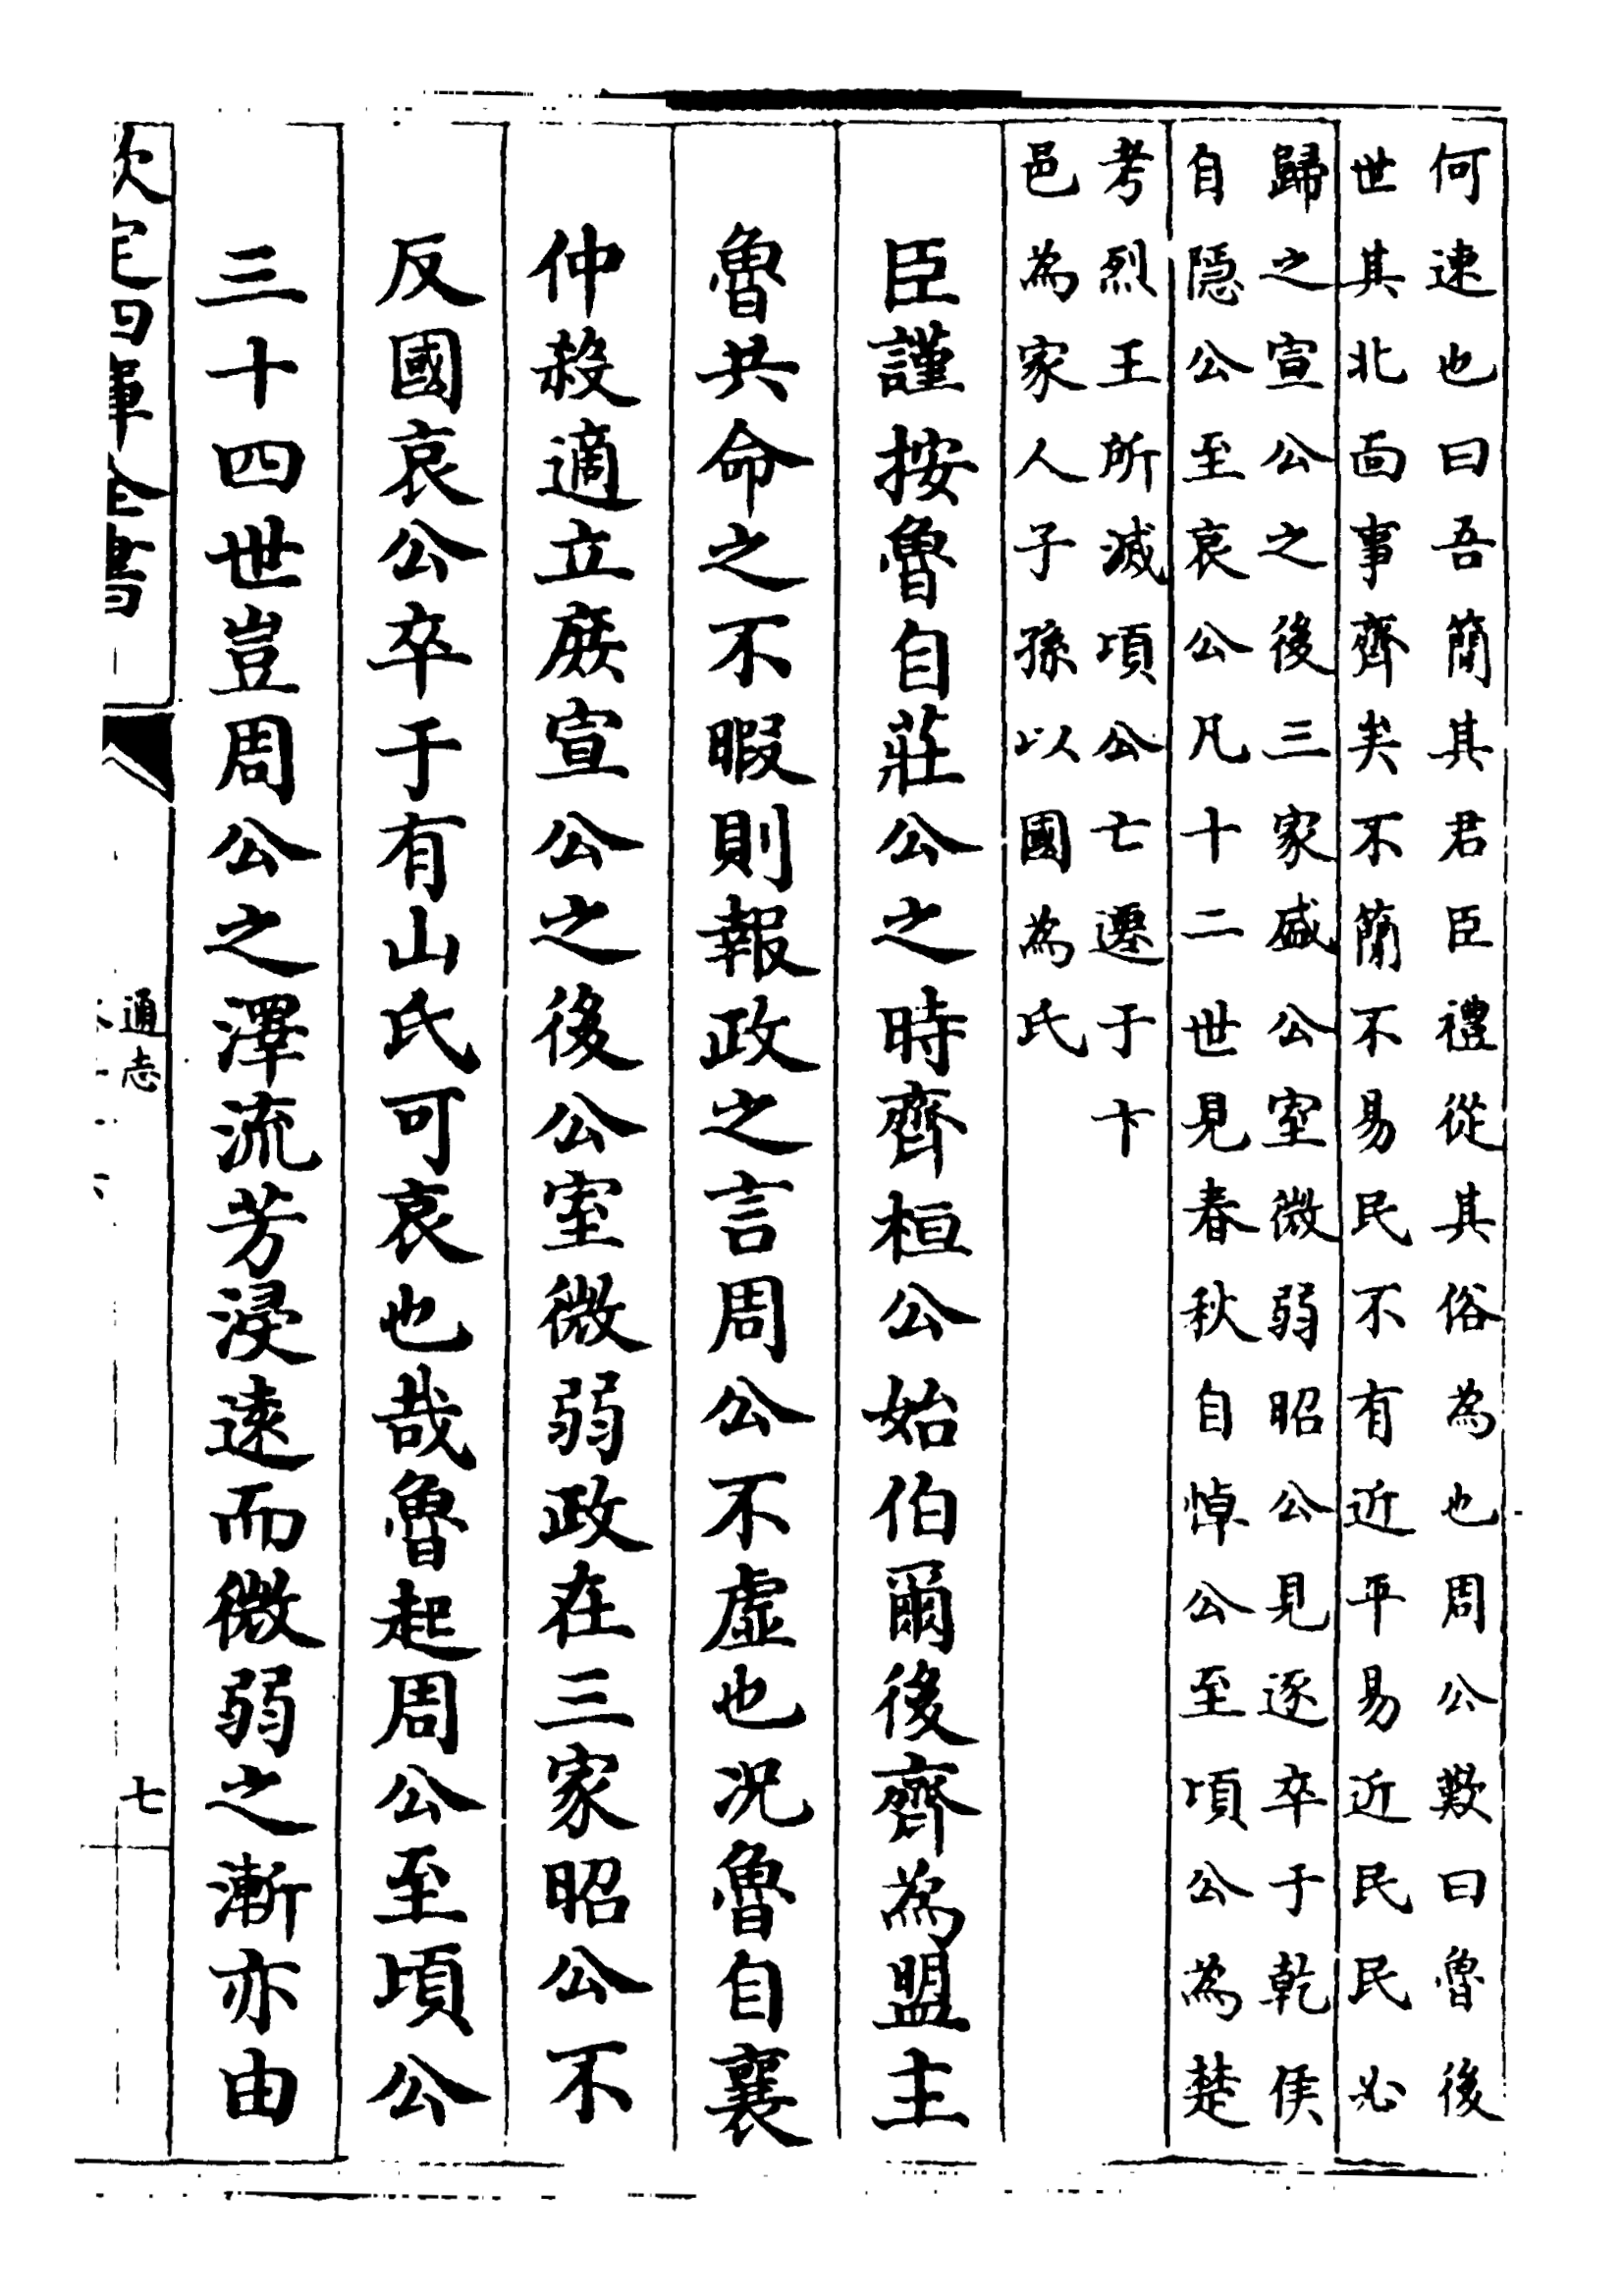 何速也曰吾簡其君臣禮從其俗為也周公歎曰魯後
世其北面事齊矣不簡不易民不有近平易近民民必
歸之宣公之後三家盛公室微弱昭公見逐卒于乾侯
自隱公至哀公凡十二世見春秋自悼公至頃公為楚
考烈王所滅頃公亡遷于卞
邑為家人子孫以國為氏
臣謹按魯自莊公之時齊桓公始伯爾後齊為盟主
魯共命之不暇則報政之言周公不虛也况魯自襄
仲殺適立庶宣公之後公室微弱政在三家昭公不
反國哀公卒于有山氏可哀也哉魯起周公至頃公
三十四世豈周公之澤流芳浸遠而微弱之漸亦由
欽定四庫全書
通志
七